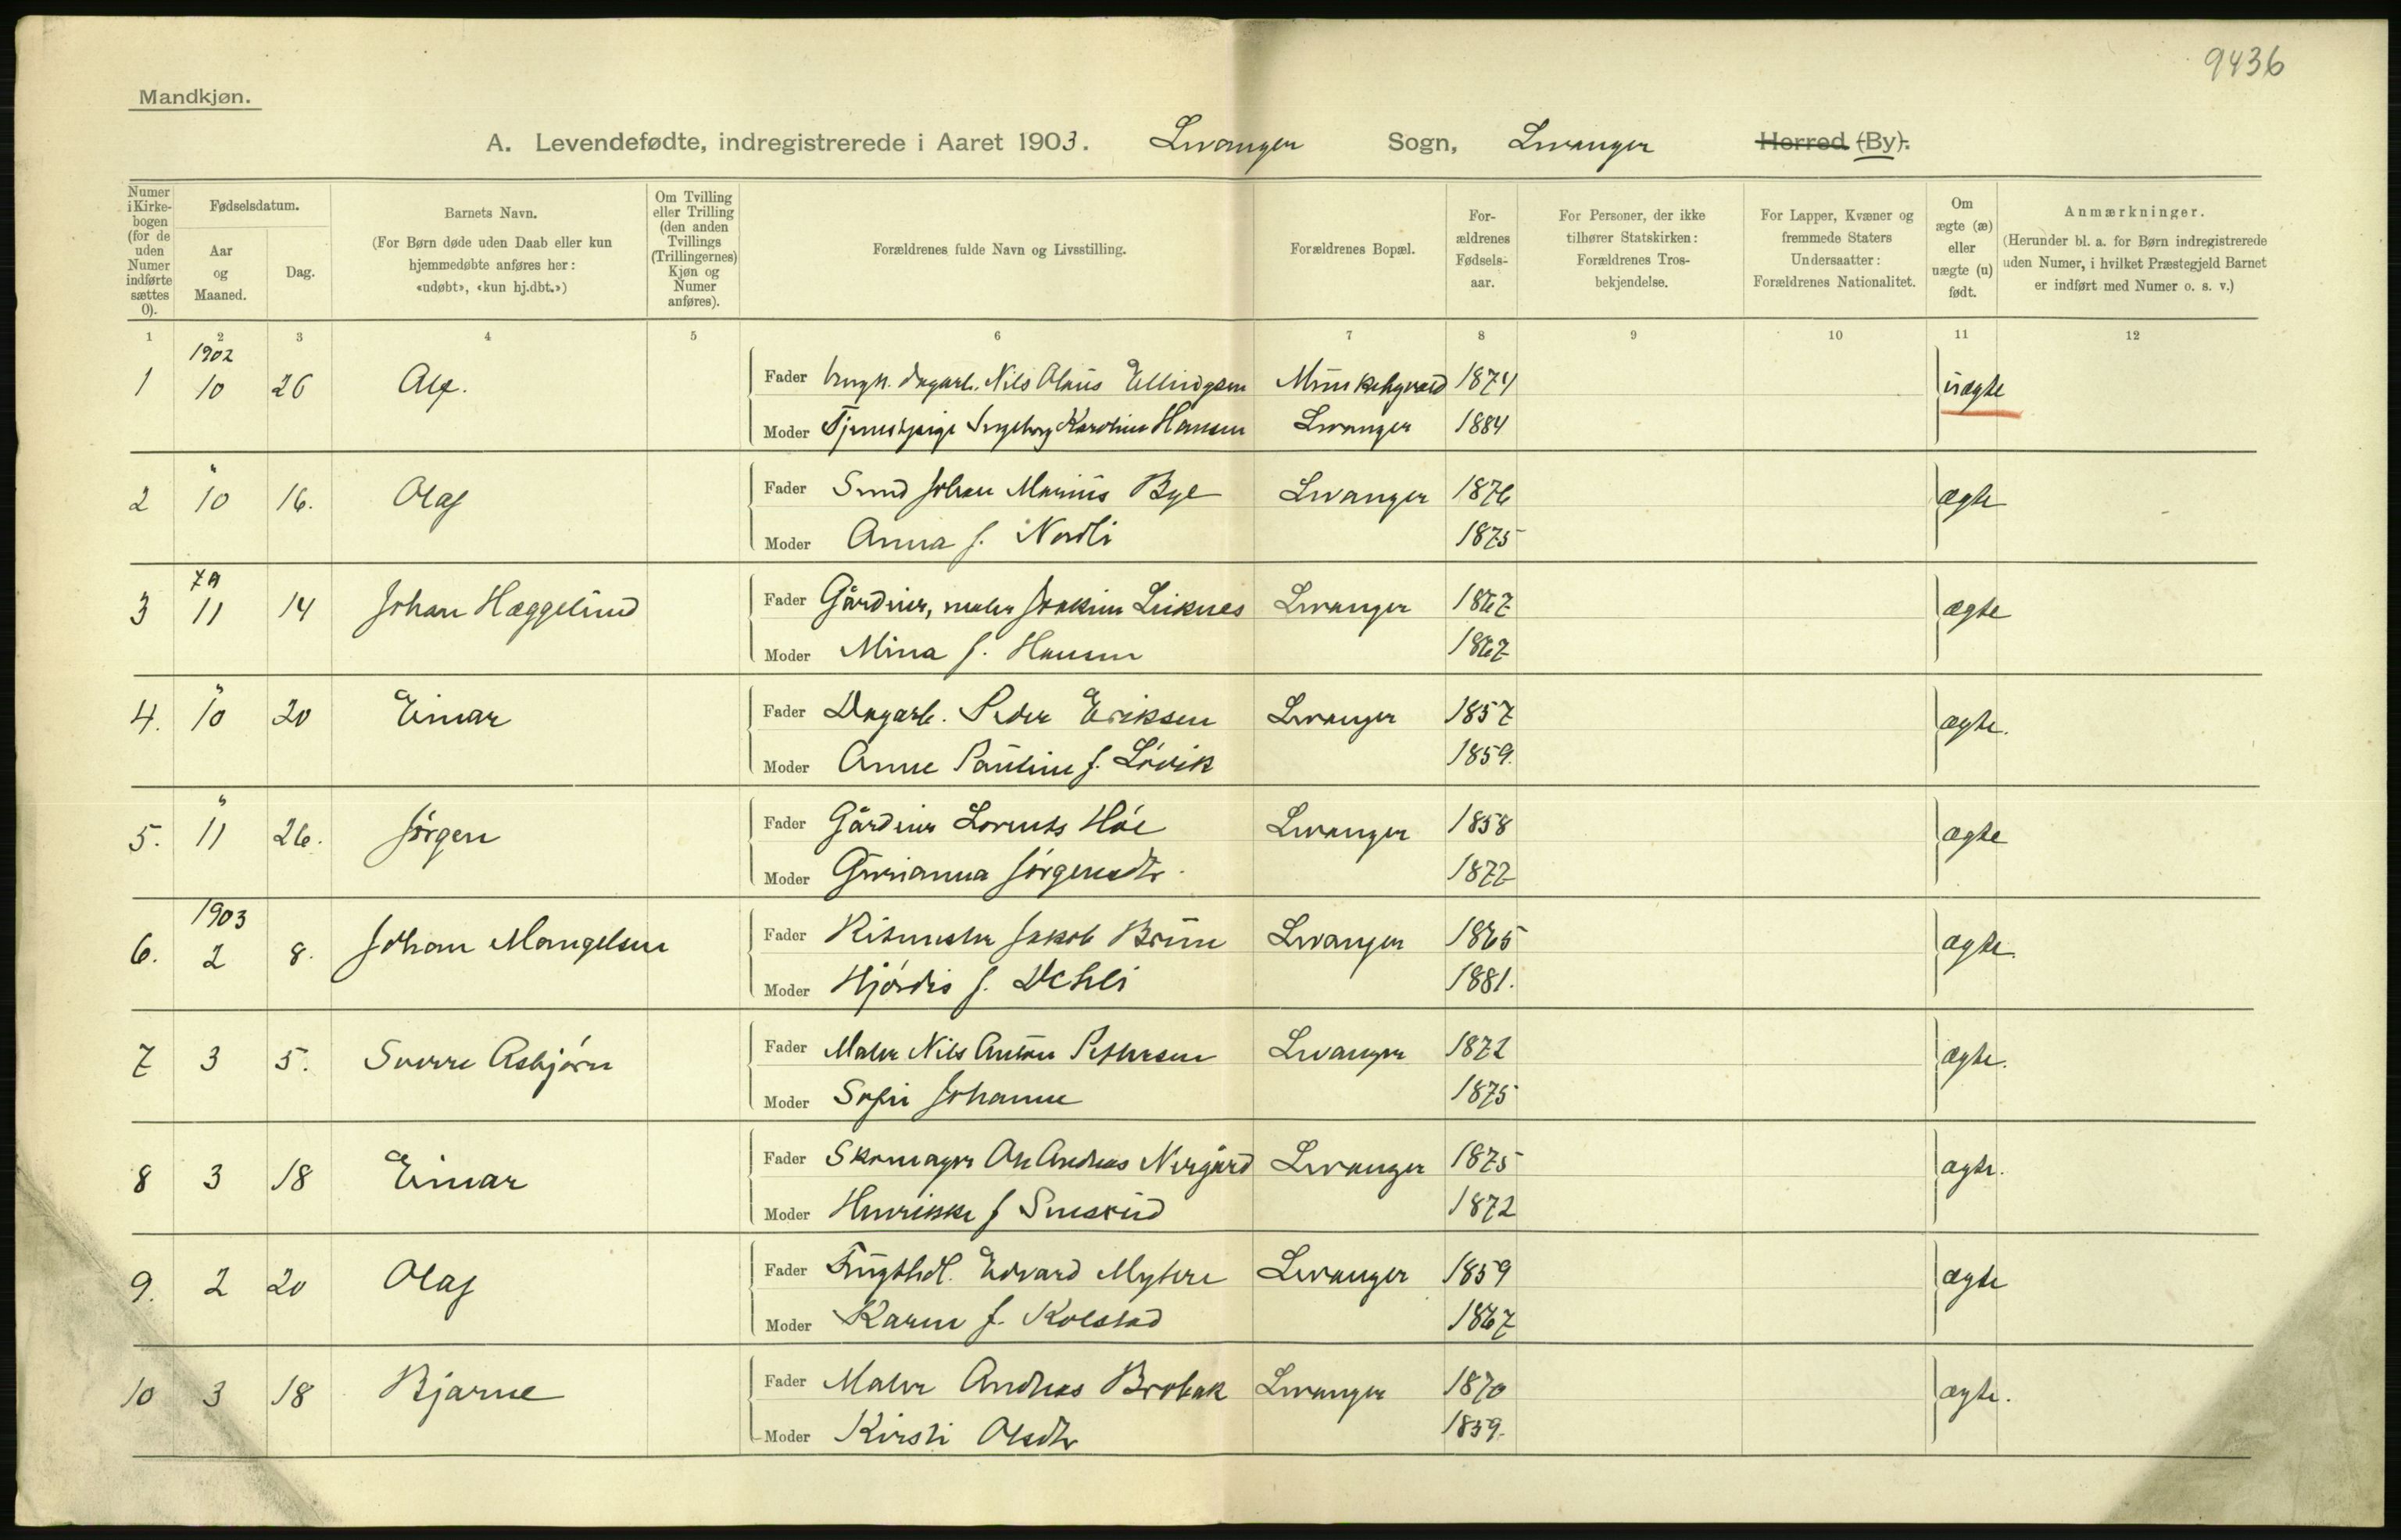 9436
Mandkjøn.
A. Levendefødte, indregistrerede i Aaret 1903. Levanger Sogn, Levanger Herred (By).
Numer i Kirkebogen (for de uden Numer indførte sættes 0).
Fødselsdatum.
Aar og Maaned.
Dag.
Barnets Navn.
(For Børn døde uden Daab eller kun hjemmedøbte anføres her: «udøbt», «kun hj.dbt.»)
Om Tvilling eller Trilling (den anden Tvillings (Trillingernes) Kjøn og Numer anføres).
Forældrenes fulde Navn og Livsstilling.
Forældrenes Bopæl.
For-ældrenes Fødsels-aar.
For Personer, der ikke tilhører Statskirken: Forældrenes Tros-bekjendelse.
For Lapper, Kvæner og fremmede Staters Undersaatter: Forældrenes Nationalitet.
Om ægte (æ) eller uægte (u) født.
Anmærkninger.
(Herunder bl. a. for Børn indregistrerede uden Numer, i hvilket Præstegjeld Barnet er indført med Numer o. s. v.)
1 2 3 4 5 6 7 8 9 10 11 12
1902
1 10 26 Alf. Fader Ungk. dagarb. Nils Olaus Ellingsen 1874 uægte
Moder Tjenestepige Ingeborg Karoline Hansen Levanger 1884
"
2 10 16. Olaf Fader Smed Johan Marius Bye Levanger 1876 ægte
Moder Anna f. Nordli 1875
3 11 14 Johan Hæggelund Fader Gårdeier, maler Joakim Leiknes Levanger 1867 ægte
Moder Mina f. Hansen 1867
"
4. 10 20 Einar Fader Dagarb. Peder Eriksen Levanger 1857 ægte.
Moder Anne Pauline f. Løvik 1859.
"
5. 11 26. Jørgen Fader Gårdeier Lorents Høe Levanger 1858 ægte
Moder Gurianna Jørgensdtr. 1872
1903
6. 2 8. Johan Mangelsen Fader Ritmester Jakob Brun Levanger 1865 ægte.
Moder Hjørdis f. Dehli 1881.
7 3 5. Sverre Asbjørn Fader Maler Nils Anton Petersen Levanger 1872 ægte.
Moder Sofie Johanne 1875
8 3 18 Einar Fader Skomager Ole Andreas Nergård Levanger 1875 ægte.
Moder Henrikke f 1872
9. 2 20 Olaf Fader Frugthdl. Edvard Myhre Levanger 1859 ægte
Moder Karen f. Kolstad 1867
10 3 18 Bjarne Fader Maler Andreas Brobak Levanger 1870 ægte.
Moder Kirsti Olsdtr 1859.